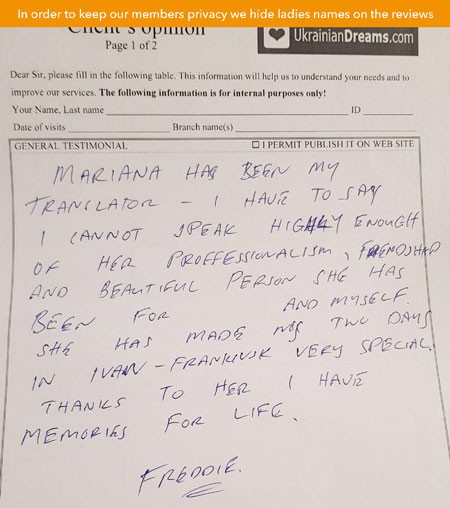 In order to keep our members privacy we hide ladies names on the reviews
Client's opinion
Page 1 of 2
UkrainianDreams.com
Dear Sir, please fill in the following table. This information will help us to understand your needs and to
improve our services. The following information is for internal purposes only!
Your Name, Last name ID
Date of visits Branch name(s)
GENERAL TESTIMONIAL I PERMIT PUBLISH IT ON WEB SITE
MARIANA HAS BEEN MY
TRANSLATOR - I HAVE TO SAY
I CANNOT SPEAK HIGHLY ENOUGH
OF HER PROFFESSIONALISM, FRIENDSHIP
AND BEAUTIFUL PERSON SHE HAS
BEEN FOR AND MYSELF.
SHE HAS MADE MY TWO DAYS
IN IVAN-FRANKIVSK VERY SPECIAL.
THANKS TO HER I HAVE
MEMORIES FOR LIFE.
FREDDIE.